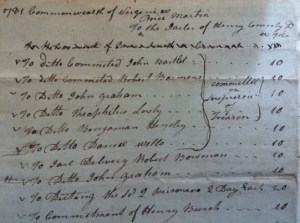 1781 Commonwealth of Virginia
Brice Martin
To the Jailor of Henry County Dr
To Ditto Commited John Barllet 10
To Ditto Commited Robert Bowman 10
To Ditto John Graham 10
To Ditto Theophilus Lacy 10
To Ditto Bengaman Hensley 10
To Ditto Daniel wells 10
committed on Suspicion of Treason
To Jail Delivery Robert Bowman 10
To Ditto John Graham 10
To Dieting the sd 2 Prisoners 2 Days Each 20
To Commitment of Henry 10